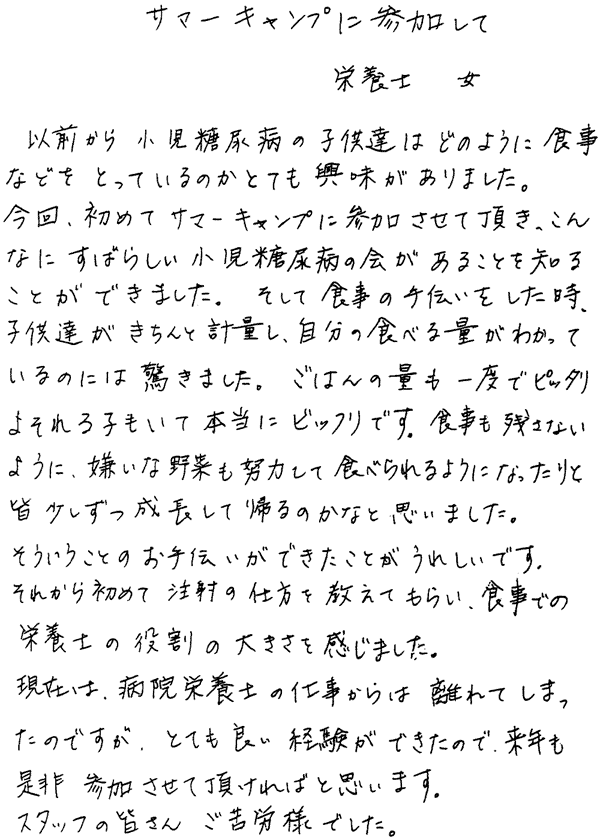 サマーキャンプに参加して
栄養士　女
以前から小児糖尿病の子供達はどのように食事
などをとっているのかとても興味がありました。
今回、初めてサマーキャンプに参加させて頂き、こん
なにすばらしい小児糖尿病の会があることを知る
ことができました。そして食事の手伝いをした時、
子供達がきちんと計量し、自分の食べる量がわかって
いるのには驚きました。ごはんの量も一度でピッタリ
よそれる子もいて本当にビックリです。食事も残さない
ように、嫌いな野菜も努力して食べられるようになったりと
皆少しずつ成長して帰るのかなと思いました。
そういうことのお手伝いができたことがうれしいです。
それから初めて注射の仕方を教えてもらい、食事での
栄養士の役割の大きさを感じました。
現在は、病院栄養士の仕事からは離れてしまっ
たのですが、とても良い経験ができたので、来年も
是非参加させて頂ければと思います。
スタッフの皆さんご苦労様でした。